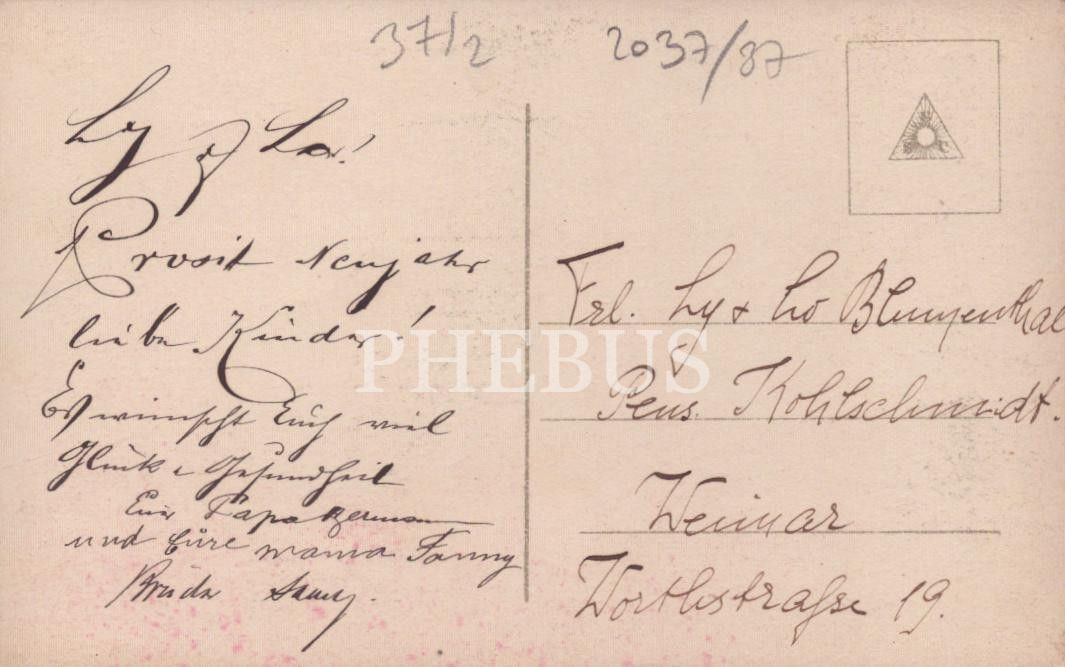 37/2 2037/87
Ly & Lo!
Prosit Neujahr
liebe Kinder!
Es wünscht Euch viel
Glück u Gesundheit
Euer Papa Herman
und Eure Mama Fanny
Bruder Samy.
Frl. Ly & Lo Blumenthal
Pens. Kohlschmidt.
Weimar
Wörthstraße 19.
PHEBUS